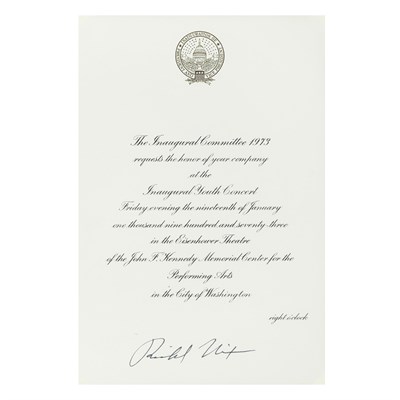 The Inaugural Committee 1973
requests the honor of your company
at the
Inaugural Youth Concert
Friday evening the nineteenth of January
one thousand nine hundred and seventy-three
in the Eisenhower Theatre
of the John F. Kennedy Memorial Center for the
Performing Arts
in the City of Washington
eight o'clock
Richard Nixon